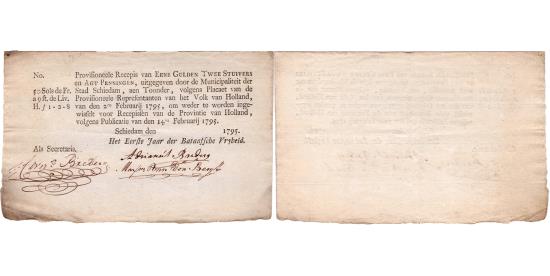 No. Provisioneele Recepis van EENE GULDEN TWEE STUIVERS
en AGT PENNINGEN, uitgegeven door de Municipaliteit der
50 Sols de Fr. Stad Schiedam, aen Toonder, volgens Placaet van de
Provisioneele Representanten van het Volk van Holland,
H. ƒ 1-2-8 van den 2de Februarij 1795, om weder te worden inge-
wisselt voor Recepissen van de Provintie van Holland,
volgens Publicatie van den 14den Februarij 1795.
Schiedam den 1795.
Het Eerste Jaar der Bataafsche Vryheid.
Als Secretaris,